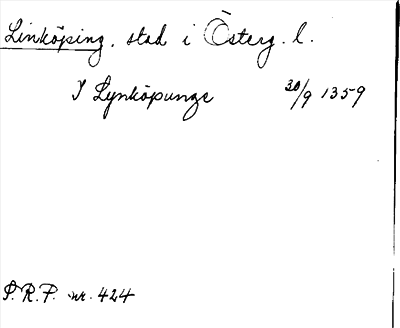 Linköping, stad i Österg. l.
I Lynköpunge 30/9 1359
P.R.P. nr. 424